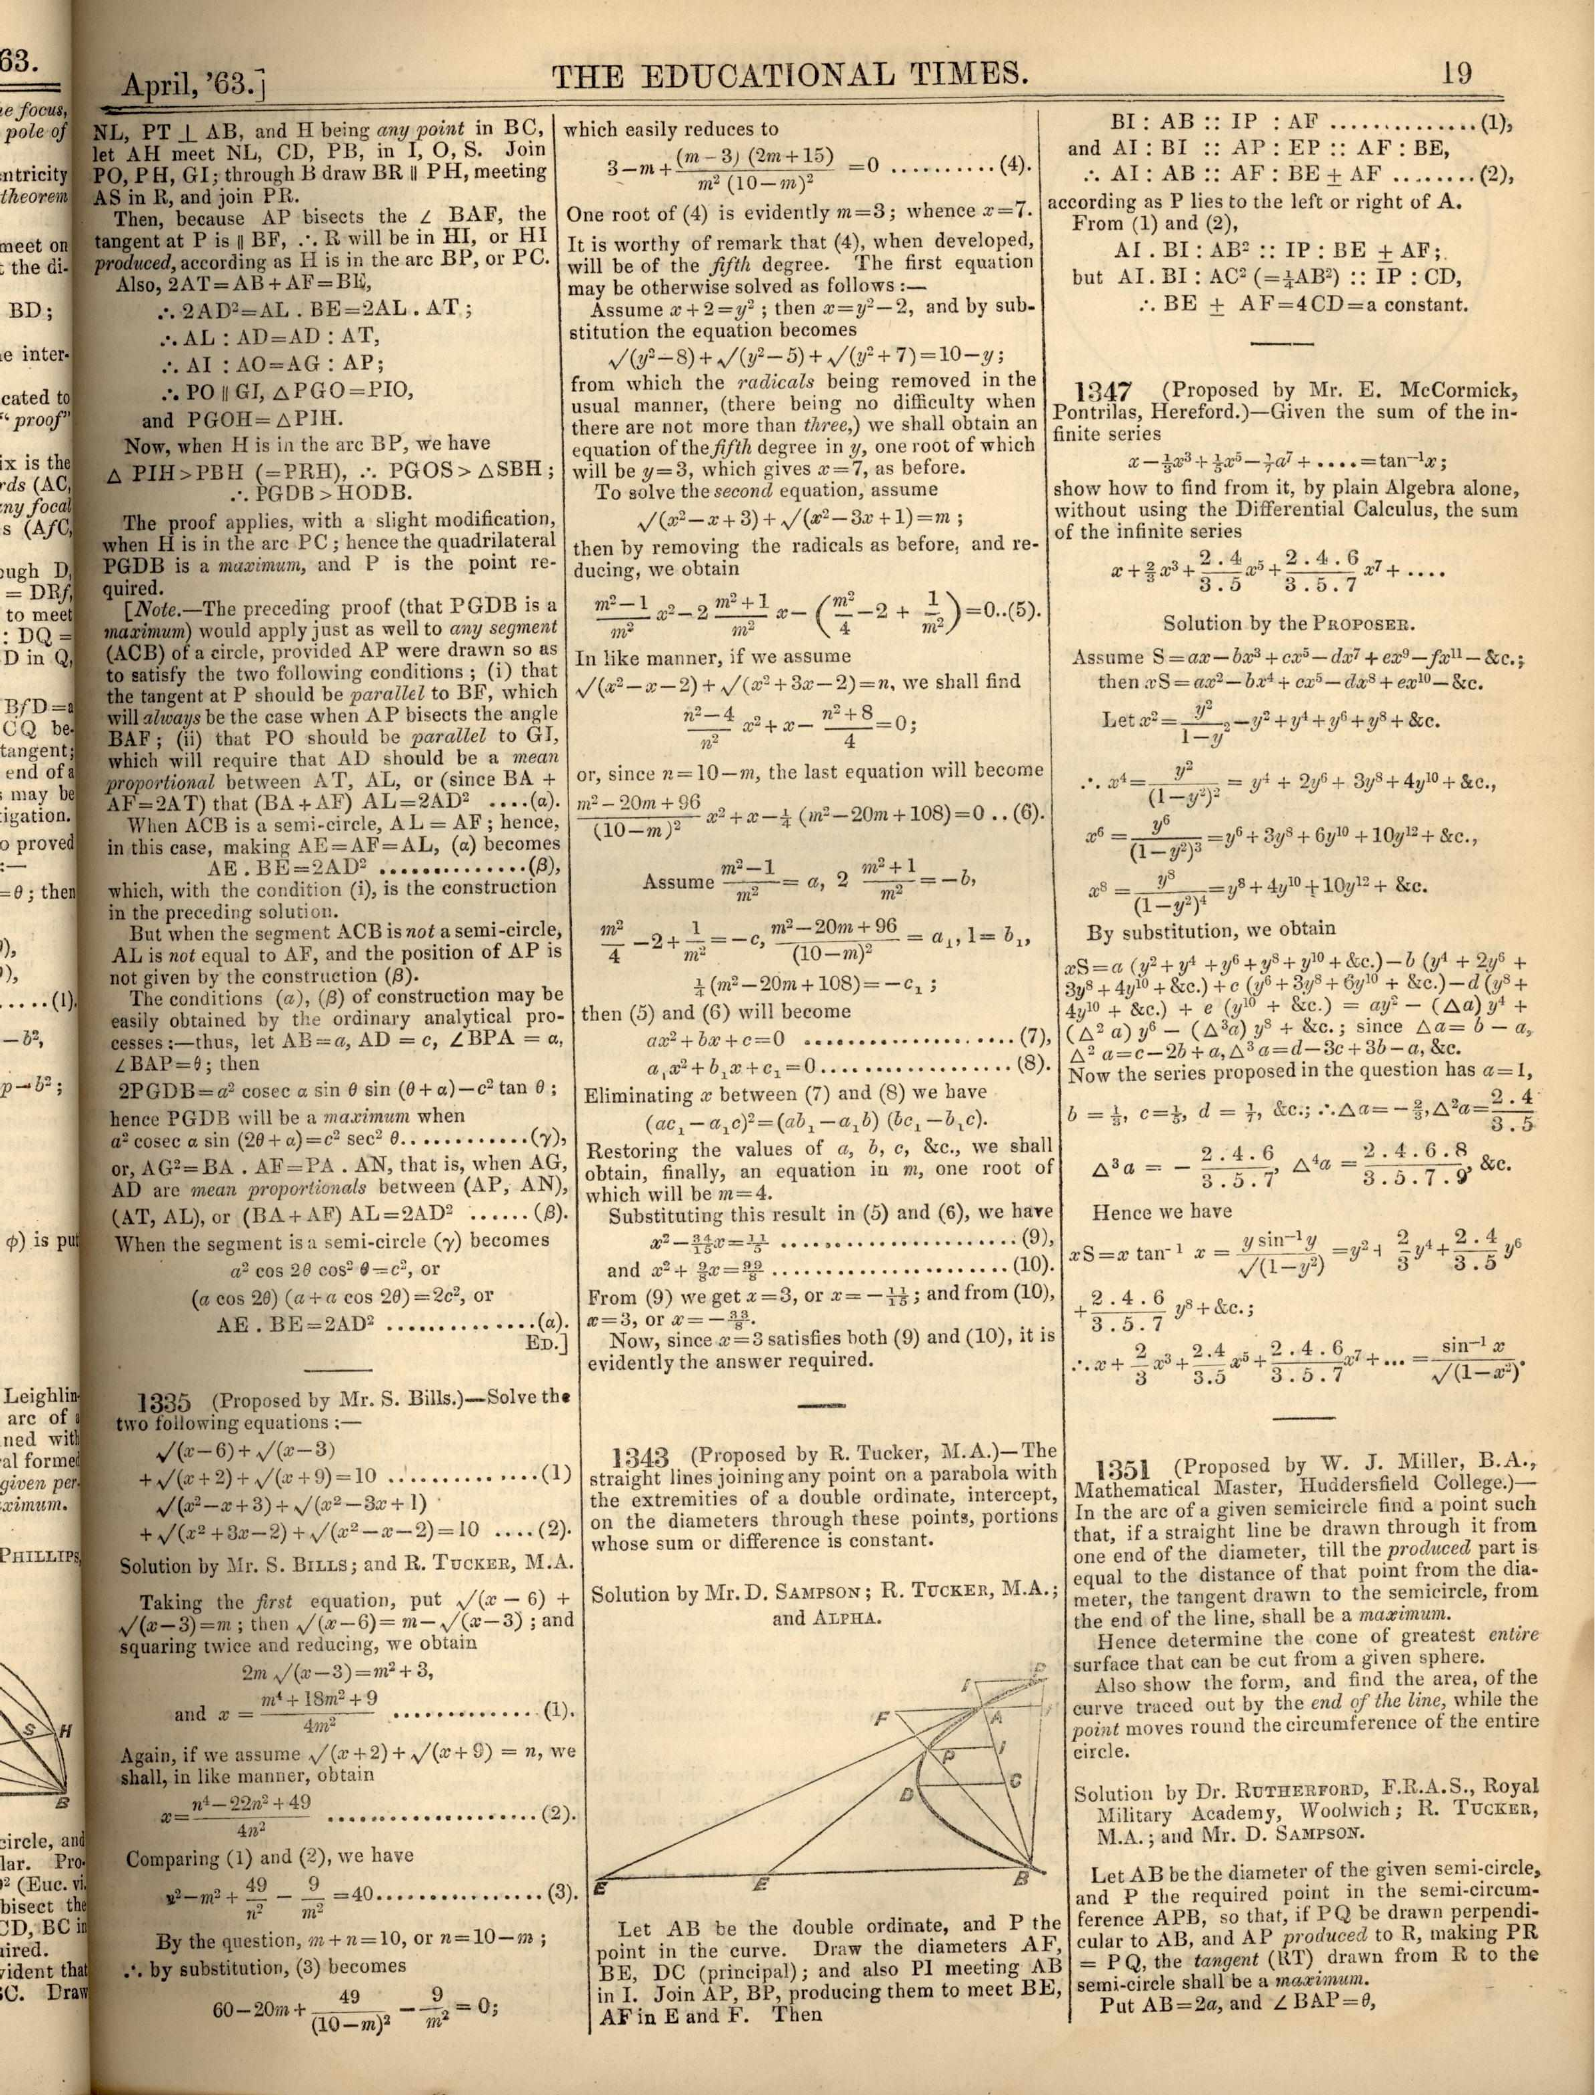 63.
April, '63.]
THE EDUCATIONAL TIMES.
19
e focus,
pole of
ntricity
theorem
meet on
the di-
BD;
e inter-
cated to
"proof"
ix is the
rds (AC,
ny focal
s (AfC,
ough D,
= DRf,
to meet
: DQ =
D in Q,
BfD=a
CQ be-
tangent;
end of a
may be
igation.
o proved
:—
=θ; then
),
),
....(1).
—b²,
p—b²;
φ) is put
Leighlin-
arc of a
ned with
al formed
given per-
ximum.
PHILLIPS,
S H
B
circle, and
lar. Pro-
² (Euc. vi.
bisect the
CD, BC in
uired.
vident that
C. Draw
NL, PT ⊥ AB, and H being any point in BC,
let AH meet NL, CD, PB, in I, O, S. Join
PO, PH, GI; through B draw BR ∥ PH, meeting
AS in R, and join PR.
Then, because AP bisects the ∠ BAF, the
tangent at P is ∥ BF, ∴ R will be in HI, or HI
produced, according as H is in the arc BP, or PC.
Also, 2AT=AB+AF=BE,
∴ 2AD²=AL . BE=2AL . AT;
∴ AL : AD=AD : AT,
∴ AI : AO=AG : AP;
∴ PO ∥ GI, △PGO=PIO,
and PGOH=△PIH.
Now, when H is in the arc BP, we have
△ PIH>PBH (=PRH), ∴ PGOS>△SBH;
∴ PGDB>HODB.
The proof applies, with a slight modification,
when H is in the arc PC; hence the quadrilateral
PGDB is a maximum, and P is the point re-
quired.
[Note.—The preceding proof (that PGDB is a
maximum) would apply just as well to any segment
(ACB) of a circle, provided AP were drawn so as
to satisfy the two following conditions; (i) that
the tangent at P should be parallel to BF, which
will always be the case when AP bisects the angle
BAF; (ii) that PO should be parallel to GI,
which will require that AD should be a mean
proportional between AT, AL, or (since BA +
AF=2AT) that (BA+AF) AL=2AD² ....(α).
When ACB is a semi-circle, AL = AF; hence,
in this case, making AE=AF=AL, (α) becomes
AE . BE=2AD² ..............(β),
which, with the condition (i), is the construction
in the preceding solution.
But when the segment ACB is not a semi-circle,
AL is not equal to AF, and the position of AP is
not given by the construction (β).
The conditions (α), (β) of construction may be
easily obtained by the ordinary analytical pro-
cesses:—thus, let AB=a, AD = c, ∠BPA = α,
∠BAP=θ; then
2PGDB=a² cosec α sin θ sin (θ+α)−c² tan θ;
hence PGDB will be a maximum when
a² cosec α sin (2θ+α)=c² sec² θ............(γ),
or, AG²=BA . AF=PA . AN, that is, when AG,
AD are mean proportionals between (AP, AN),
(AT, AL), or (BA+AF) AL=2AD² ......(β).
When the segment is a semi-circle (γ) becomes
a² cos 2θ cos² θ=c², or
(a cos 2θ) (a+a cos 2θ)=2c², or
AE . BE=2AD² ...............(α).
ED.]
1335 (Proposed by Mr. S. Bills.)—Solve the
two following equations:—
√(x−6)+√(x−3)
+√(x+2)+√(x+9)=10 ..............(1)
√(x²−x+3)+√(x²−3x+1)
+√(x²+3x−2)+√(x²−x−2)=10 ....(2).
Solution by Mr. S. BILLS; and R. TUCKER, M.A.
Taking the first equation, put √(x − 6) +
√(x−3)=m; then √(x−6)= m−√(x−3); and
squaring twice and reducing, we obtain
2m √(x−3)=m²+3,
and x = (m⁴+18m²+9)/4m² ..............(1).
Again, if we assume √(x+2)+√(x+9) = n, we
shall, in like manner, obtain
x= (n⁴−22n²+49)/4n² .....................(2).
Comparing (1) and (2), we have
n²−m²+ 49/n² − 9/m² =40................(3).
By the question, m+n=10, or n=10−m;
∴ by substitution, (3) becomes
60−20m+ 49/(10−m)² − 9/m² = 0;
which easily reduces to
3−m+ (m−3) (2m+15)/m² (10−m)² =0 ..........(4).
One root of (4) is evidently m=3; whence x=7.
It is worthy of remark that (4), when developed,
will be of the fifth degree. The first equation
may be otherwise solved as follows:—
Assume x+2=y²; then x=y²−2, and by sub-
stitution the equation becomes
√(y²−8)+√(y²−5)+√(y²+7)=10−y;
from which the radicals being removed in the
usual manner, (there being no difficulty when
there are not more than three,) we shall obtain an
equation of the fifth degree in y, one root of which
will be y=3, which gives x=7, as before.
To solve the second equation, assume
√(x²−x+3)+√(x²−3x+1)=m;
then by removing the radicals as before, and re-
ducing, we obtain
(m²−1)/m² x²−2 (m²+1)/m² x− (m²/4 −2 + 1/m²)=0..(5).
In like manner, if we assume
√(x²−x−2)+√(x²+3x−2)=n, we shall find
(n²−4)/n² x²+x− (n²+8)/4 =0;
or, since n=10−m, the last equation will become
(m²−20m+96)/(10−m)² x²+x−¼ (m²−20m+108)=0 ..(6).
Assume (m²−1)/m² = a, 2 (m²+1)/m² =−b,
m²/4 −2+ 1/m² =−c, (m²−20m+96)/(10−m)² = a₁, 1= b₁,
¼ (m²−20m+108)=−c₁;
then (5) and (6) will become
ax²+bx+c=0 .....................(7),
a₁x²+b₁x+c₁=0....................(8).
Eliminating x between (7) and (8) we have
(ac₁−a₁c)²=(ab₁−a₁b) (bc₁−b₁c).
Restoring the values of a, b, c, &c., we shall
obtain, finally, an equation in m, one root of
which will be m=4.
Substituting this result in (5) and (6), we have
x²−34/15 x=11/5 ........................(9),
and x²+ 9/8 x=99/8 ........................(10).
From (9) we get x=3, or x=−11/15; and from (10),
x=3, or x=−33/8.
Now, since x=3 satisfies both (9) and (10), it is
evidently the answer required.
1343 (Proposed by R. Tucker, M.A.)—The
straight lines joining any point on a parabola with
the extremities of a double ordinate, intercept,
on the diameters through these points, portions
whose sum or difference is constant.
Solution by Mr. D. SAMPSON; R. TUCKER, M.A.;
and ALPHA.
I P
F A
P I
D C
E E B
Let AB be the double ordinate, and P the
point in the curve. Draw the diameters AF,
BE, DC (principal); and also PI meeting AB
in I. Join AP, BP, producing them to meet BE,
AF in E and F. Then
BI : AB :: IP : AF ..............(1),
and AI : BI :: AP : EP :: AF : BE,
∴ AI : AB :: AF : BE ± AF ........(2),
according as P lies to the left or right of A.
From (1) and (2),
AI . BI : AB² :: IP : BE ± AF;
but AI . BI : AC² (=¼AB²) :: IP : CD,
∴ BE ± AF=4CD=a constant.
1347 (Proposed by Mr. E. McCormick,
Pontrilas, Hereford.)—Given the sum of the in-
finite series
x−⅓x³+⅕x⁵−⅐x⁷+ ....=tan⁻¹x;
show how to find from it, by plain Algebra alone,
without using the Differential Calculus, the sum
of the infinite series
x+⅔x³+ 2.4/3.5 x⁵+ 2.4.6/3.5.7 x⁷+ ....
Solution by the PROPOSER.
Assume S=ax−bx³+cx⁵−dx⁷+ex⁹−fx¹¹−&c.;
then xS=ax²−bx⁴+cx⁵−dx⁸+ex¹⁰−&c.
Let x²= y²/1−y² −y²+y⁴+y⁶+y⁸+&c.
∴ x⁴= y²/(1−y²)² = y⁴ + 2y⁶ + 3y⁸+4y¹⁰+&c.,
x⁶ = y⁶/(1−y²)³ =y⁶+3y⁸+6y¹⁰+10y¹²+&c.,
x⁸ = y⁸/(1−y²)⁴ =y⁸+4y¹⁰+10y¹²+ &c.
By substitution, we obtain
xS=a (y²+y⁴ +y⁶+y⁸+y¹⁰+&c.)−b (y⁴ + 2y⁶ +
3y⁸+4y¹⁰+&c.)+c (y⁶+3y⁸+6y¹⁰+&c.)−d (y⁸+
4y¹⁰ + &c.) + e (y¹⁰ + &c.) = ay² − (△a) y⁴ +
(△² a) y⁶ − (△³a) y⁸ + &c.; since △a= b − a,
△² a=c−2b+a, △³ a=d−3c+3b−a, &c.
Now the series proposed in the question has a=1,
b = ⅓, c=⅕, d = ⅐, &c.; ∴△a=−⅔, △²a= 2.4/3.5
△³ a = − 2.4.6/3.5.7, △⁴a = 2.4.6.8/3.5.7.9, &c.
Hence we have
xS=x tan⁻¹ x = y sin⁻¹y/√(1−y²) =y²+ 2/3 y⁴+ 2.4/3.5 y⁶
+ 2.4.6/3.5.7 y⁸+&c.;
∴x+ 2/3 x³+ 2.4/3.5 x⁵+ 2.4.6/3.5.7 x⁷+... = sin⁻¹ x/√(1−x²).
1351 (Proposed by W. J. Miller, B.A.,
Mathematical Master, Huddersfield College.)—
In the arc of a given semicircle find a point such
that, if a straight line be drawn through it from
one end of the diameter, till the produced part is
equal to the distance of that point from the dia-
meter, the tangent drawn to the semicircle, from
the end of the line, shall be a maximum.
Hence determine the cone of greatest entire
surface that can be cut from a given sphere.
Also show the form, and find the area, of the
curve traced out by the end of the line, while the
point moves round the circumference of the entire
circle.
Solution by Dr. RUTHERFORD, F.R.A.S., Royal
Military Academy, Woolwich; R. TUCKER,
M.A.; and Mr. D. SAMPSON.
Let AB be the diameter of the given semi-circle,
and P the required point in the semi-circum-
ference APB, so that, if PQ be drawn perpendi-
cular to AB, and AP produced to R, making PR
= PQ, the tangent (RT) drawn from R to the
semi-circle shall be a maximum.
Put AB=2a, and ∠ BAP=θ,